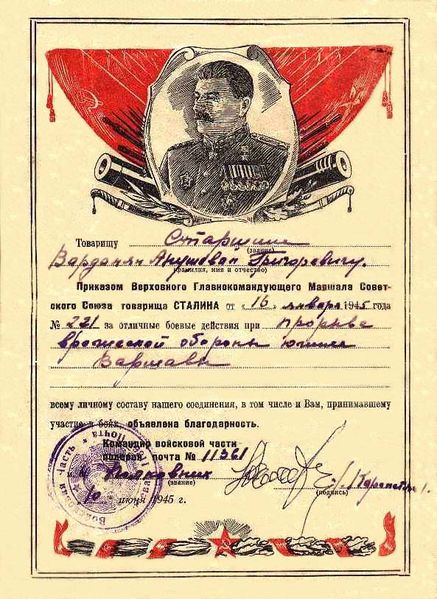 Товарищу Старшине
(звание)
Варданян Анушаван Григоровичу.
(фамилия, имя и отчество)
Приказом Верховного Главнокомандующего Маршала Совет-
ского Союза товарища СТАЛИНА от „16 января 1945 года
№ 221 за отличные боевые действия при прорыве
вражеской обороны южнее
Варшавы
всему личному составу нашего соединения, в том числе и Вам, принимавшему
участие в боях, объявлена благодарность.
Командир войсковой части
полевая почта № 11361
Полковник
(звание)
(подпись)
10 июня 1945 г.
Войсковая Часть